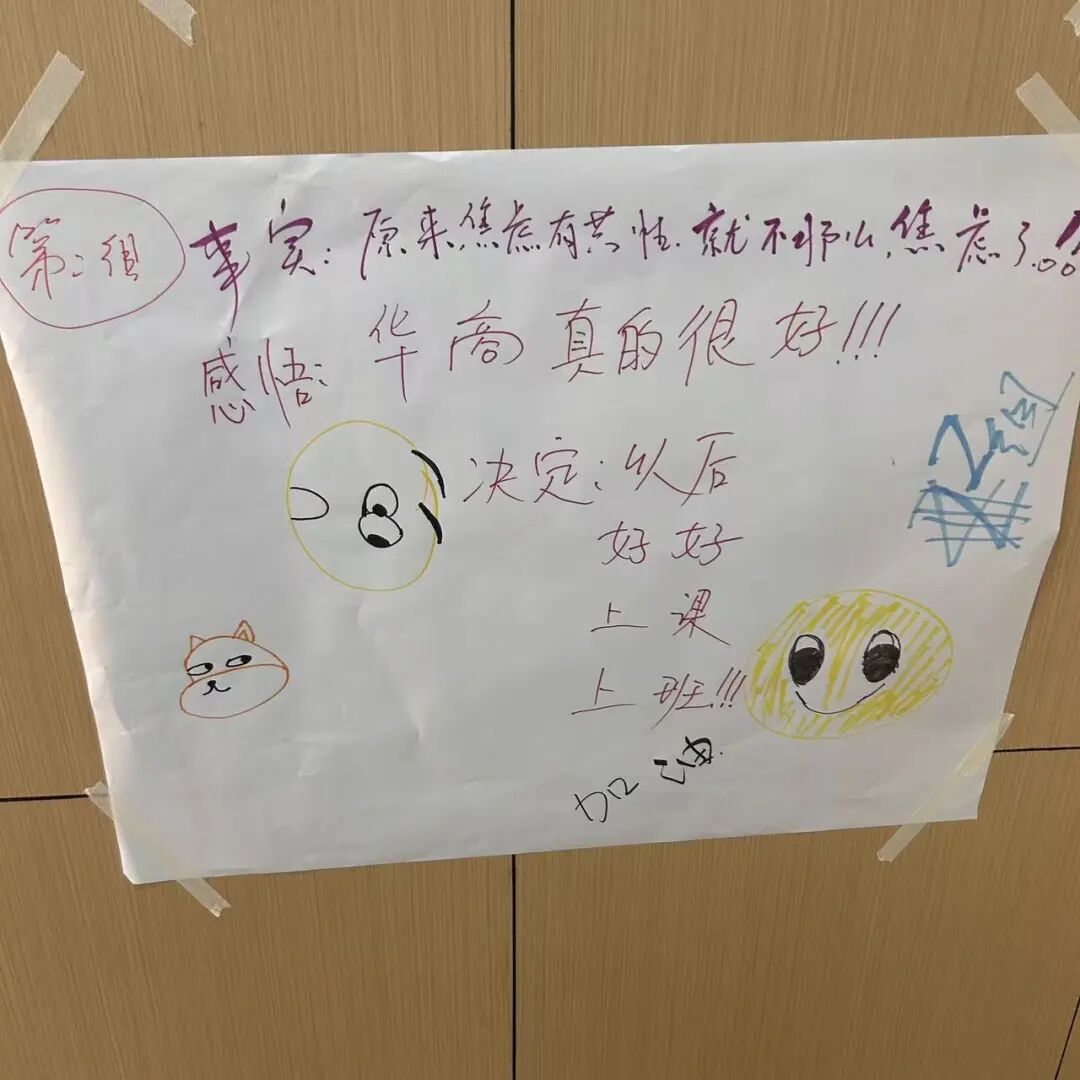 第二组
事实:原来焦虑有共性.就不那么焦虑了!!
感悟:华商真的很好!!!
决定:以后
好好
上课
上班!!!
加油.